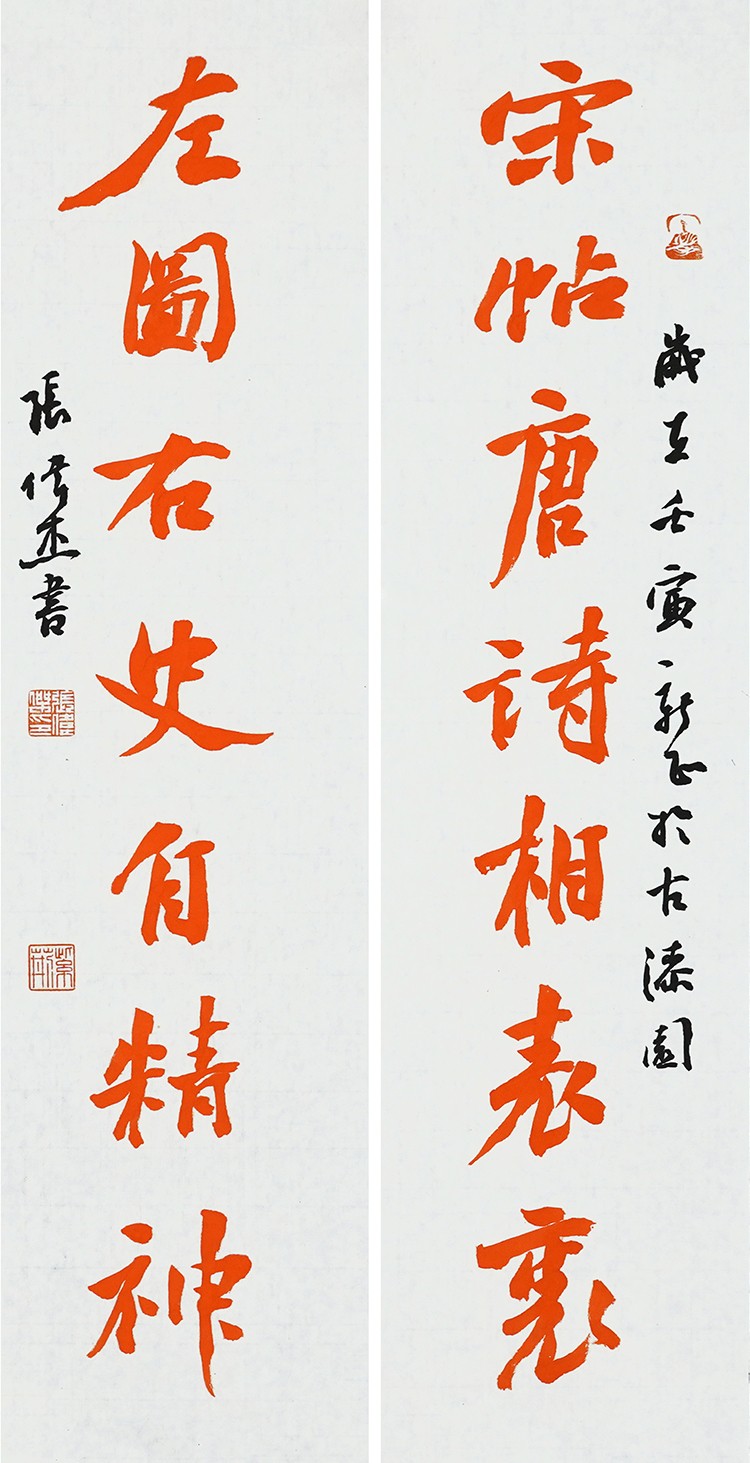 歲在壬寅新正於古漆園
宋帖唐詩相表裏
左圖右史自精神
張偉杰書